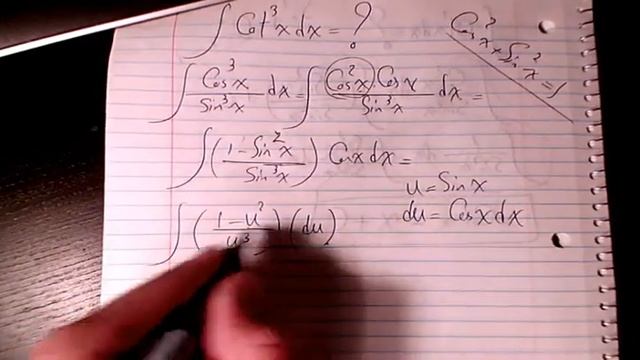 ∫ Cot³x dx = ?
Cos²x + Sin²x = 1
∫ Cos³x / Sin³x dx = ∫ Cos²x · Cosx / Sin³x dx =
∫ ( 1 - Sin²x / Sin³x ) Cosx dx =
u = Sinx
du = Cosx dx
∫ ( 1 - u² / u³ ) (du)